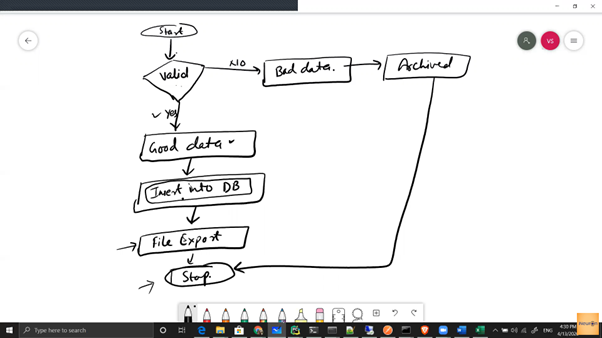 Start
Valid
NO
Bad data.
Archived
Yes
Good data
Insert into DB
File Export
Stop.
VS
Type here to search
ENG
4:59 PM